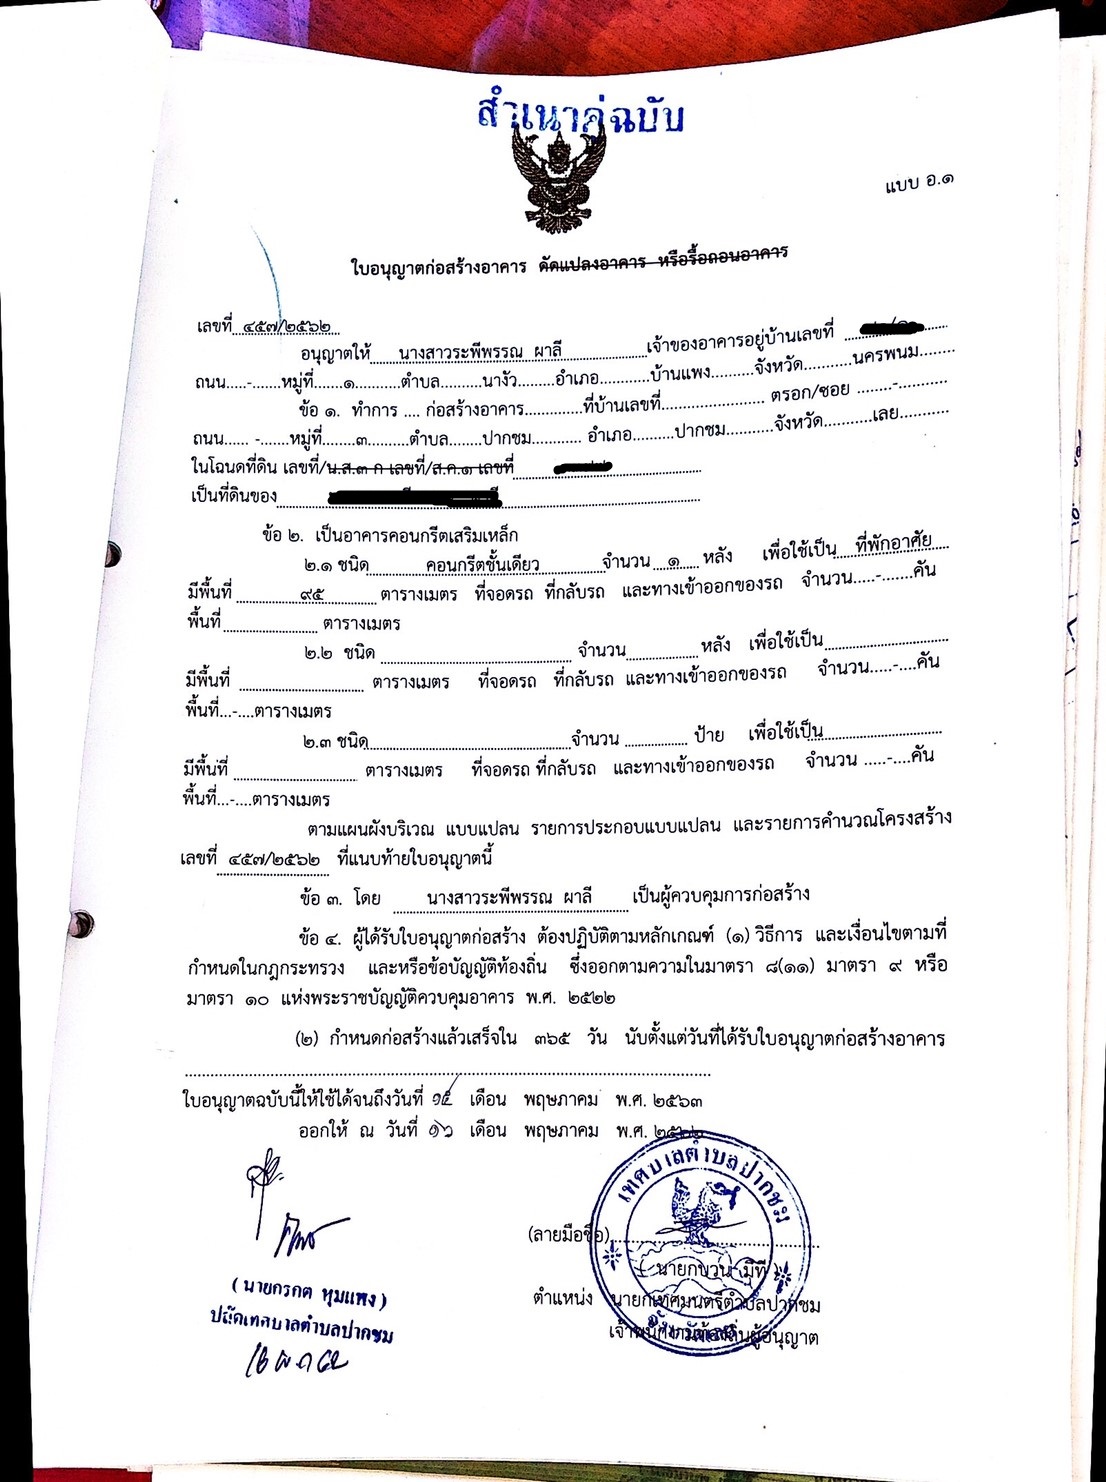 สำเนาคู่ฉบับ
แบบ อ.๑
ใบอนุญาตก่อสร้างอาคาร ดัดแปลงอาคาร หรือรื้อถอนอาคาร
เลขที่ ๔๕๗/๒๕๖๒
อนุญาตให้ นางสาวระพีพรรณ ผาลี เจ้าของอาคารอยู่บ้านเลขที่
ถนน....-......หมู่ที่......๑..........ตำบล.........นางัว........อำเภอ...........บ้านแพง.........จังหวัด..........นครพนม.......
ข้อ ๑. ทำการ .... ก่อสร้างอาคาร............ที่บ้านเลขที่...................... ตรอก/ซอย ........-..........
ถนน...... -......หมู่ที่........๓.........ตำบล.......ปากชม........... อำเภอ.........ปากชม..........จังหวัด..........เลย..........
ในโฉนดที่ดิน เลขที่/น.ส.๓ ก เลขที่/ส.ค.๑ เลขที่
เป็นที่ดินของ
ข้อ ๒. เป็นอาคารคอนกรีตเสริมเหล็ก
๒.๑ ชนิด คอนกรีตชั้นเดียว จำนวน ๑ หลัง เพื่อใช้เป็น ที่พักอาศัย
มีพื้นที่ ๙๕ ตารางเมตร ที่จอดรถ ที่กลับรถ และทางเข้าออกของรถ จำนวน.....-.......คัน
พื้นที่ .................... ตารางเมตร
๒.๒ ชนิด .................... จำนวน .......... หลัง เพื่อใช้เป็น ....................
มีพื้นที่ .................... ตารางเมตร ที่จอดรถ ที่กลับรถ และทางเข้าออกของรถ จำนวน.....-....คัน
พื้นที่...-....ตารางเมตร
๒.๓ ชนิด....................จำนวน .......... ป้าย เพื่อใช้เป็น ....................
มีพื้นที่ .................... ตารางเมตร ที่จอดรถ ที่กลับรถ และทางเข้าออกของรถ จำนวน .....-....คัน
พื้นที่...-....ตารางเมตร
ตามแผนผังบริเวณ แบบแปลน รายการประกอบแบบแปลน และรายการคำนวณโครงสร้าง
เลขที่ ๔๕๗/๒๕๖๒ ที่แนบท้ายใบอนุญาตนี้
ข้อ ๓. โดย นางสาวระพีพรรณ ผาลี เป็นผู้ควบคุมการก่อสร้าง
ข้อ ๔. ผู้ได้รับใบอนุญาตก่อสร้าง ต้องปฏิบัติตามหลักเกณฑ์ (๑) วิธีการ และเงื่อนไขตามที่
กำหนดในกฎกระทรวง และหรือข้อบัญญัติท้องถิ่น ซึ่งออกตามความในมาตรา ๘(๑๑) มาตรา ๙ หรือ
มาตรา ๑๐ แห่งพระราชบัญญัติควบคุมอาคาร พ.ศ. ๒๕๒๒
(๒) กำหนดก่อสร้างแล้วเสร็จใน ๓๖๕ วัน นับตั้งแต่วันที่ได้รับใบอนุญาตก่อสร้างอาคาร
ใบอนุญาตฉบับนี้ให้ใช้ได้จนถึงวันที่ ๑๕ เดือน พฤษภาคม พ.ศ. ๒๕๖๓
ออกให้ ณ วันที่ ๑๖ เดือน พฤษภาคม พ.ศ. ๒๕๖๒
เทศบาลตำบลปากชม
จังหวัดเลย
(ลายมือชื่อ)
ตำแหน่ง นายกเทศมนตรีตำบลปากชม
เจ้าพนักงานท้องถิ่นผู้อนุญาต
(นายกรกต หุมแพง)
ปลัดเทศบาลตำบลปากชม
16 พ.ค 62